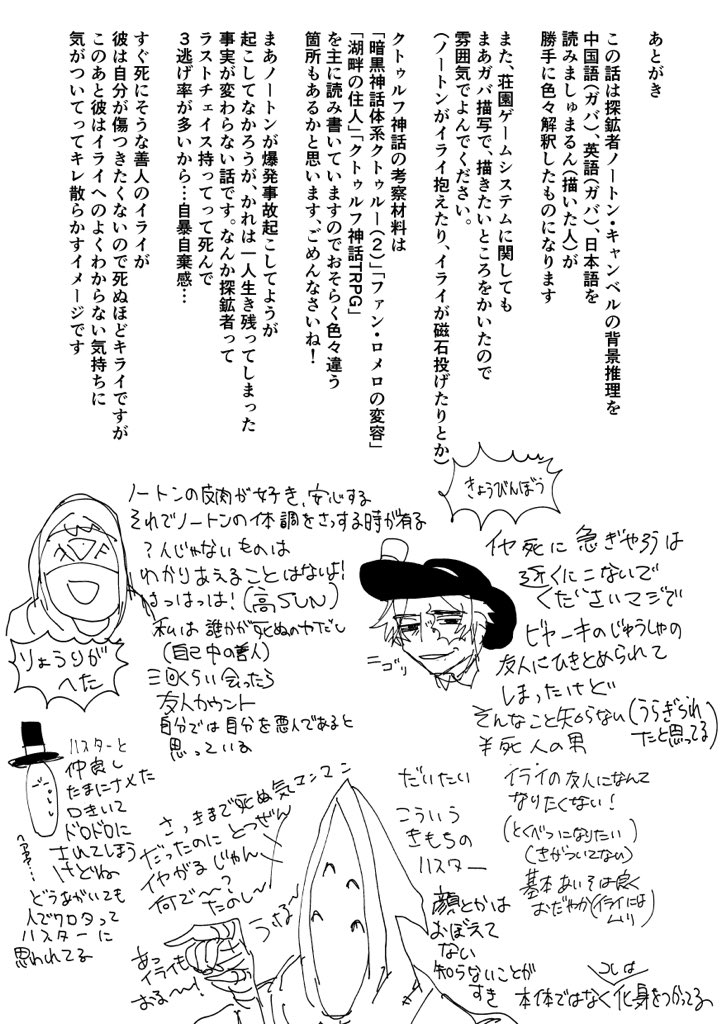 あとがき
この話は探鉱者ノートン・キャンベルの背景推理を
中国語(ガバ)、英語(ガバ)、日本語を
読みましゅまるん(描いた人)が
勝手に色々解釈したものになります
また、荘園ゲームシステムに関しても
まあガバ描写で、描きたいところをかいたので
雰囲気でよんでください。
(ノートンがイライ抱えたり、イライが磁石投げたりとか)
クトゥルフ神話の考察材料は
「暗黒神話体系クトゥルー(2)」「ファン・ロメロの変容」
「湖畔の住人」「クトゥルフ神話TRPG」
を主に読み書いていますのでおそらく色々違う
箇所もあるかと思います、ごめんなさいね!
まあノートンが爆発事故起こしてようが
起こしてなかろうが、かれは一人生き残ってしまった
事実が変わらない話です。なんか探鉱者って
ラストチェイス持ってって死んで
3逃げ率が多いから…自暴自棄感…
すぐ死にそうな善人のイライが
彼は自分が傷つきたくないので死ぬほどキライですが
このあと彼はイライへのよくわからない気持ちに
気がついてってキレ散らかすイメージです
きょうびんぼう
ノートンの皮肉が好き、安心する
それでノートンの体調をさっする時が有る
?人じゃないものは
わかりあえることはないよ!
はっはっは!(高SUN)
私は誰かが死ぬのやだし
(自己中の善人)
三回くらい会ったら
友人カウント
自分では自分を悪人であると
思っている
りょうりが
へた
イヤ死に急ぎやろうは
近くにこないで
くださいマジで
ビヤーキのじゅうしゃの
友人にひきとめられて
しまったけど
そんなこと知らない(うらぎられ
たと思ってる)
半死人の男
ニゴリ
イライの友人になんて
なりたくない!
(とくべつになりたい)
(きがついてない)
基本あいそは良く
おだやか(イライには
ムリ)
ハスターと
仲良し
たまにナメた
口きいて
ドロドロに
されてしまう
けどね
どうあがいても
人でワロタって
ハスターに
思われてる
さっきまで死ぬ気マンマン
だったのにとつぜん
イヤがるじゃん
何で〜?
たのし〜
うける〜
あっ
イライも
おる〜!
だいたい
こういう
きもちの
ハスター
顔とかは
おぼえて
ない
知らないことが
すき
コレは
本体ではなく化身をつかってる